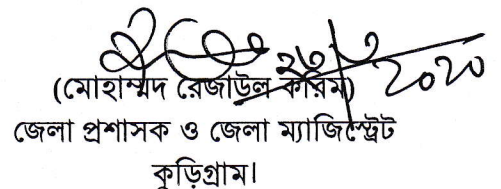 ২০২০
(মোহাম্মদ রেজাউল করিম)
জেলা প্রশাসক ও জেলা ম্যাজিস্ট্রেট
কুড়িগ্রাম।